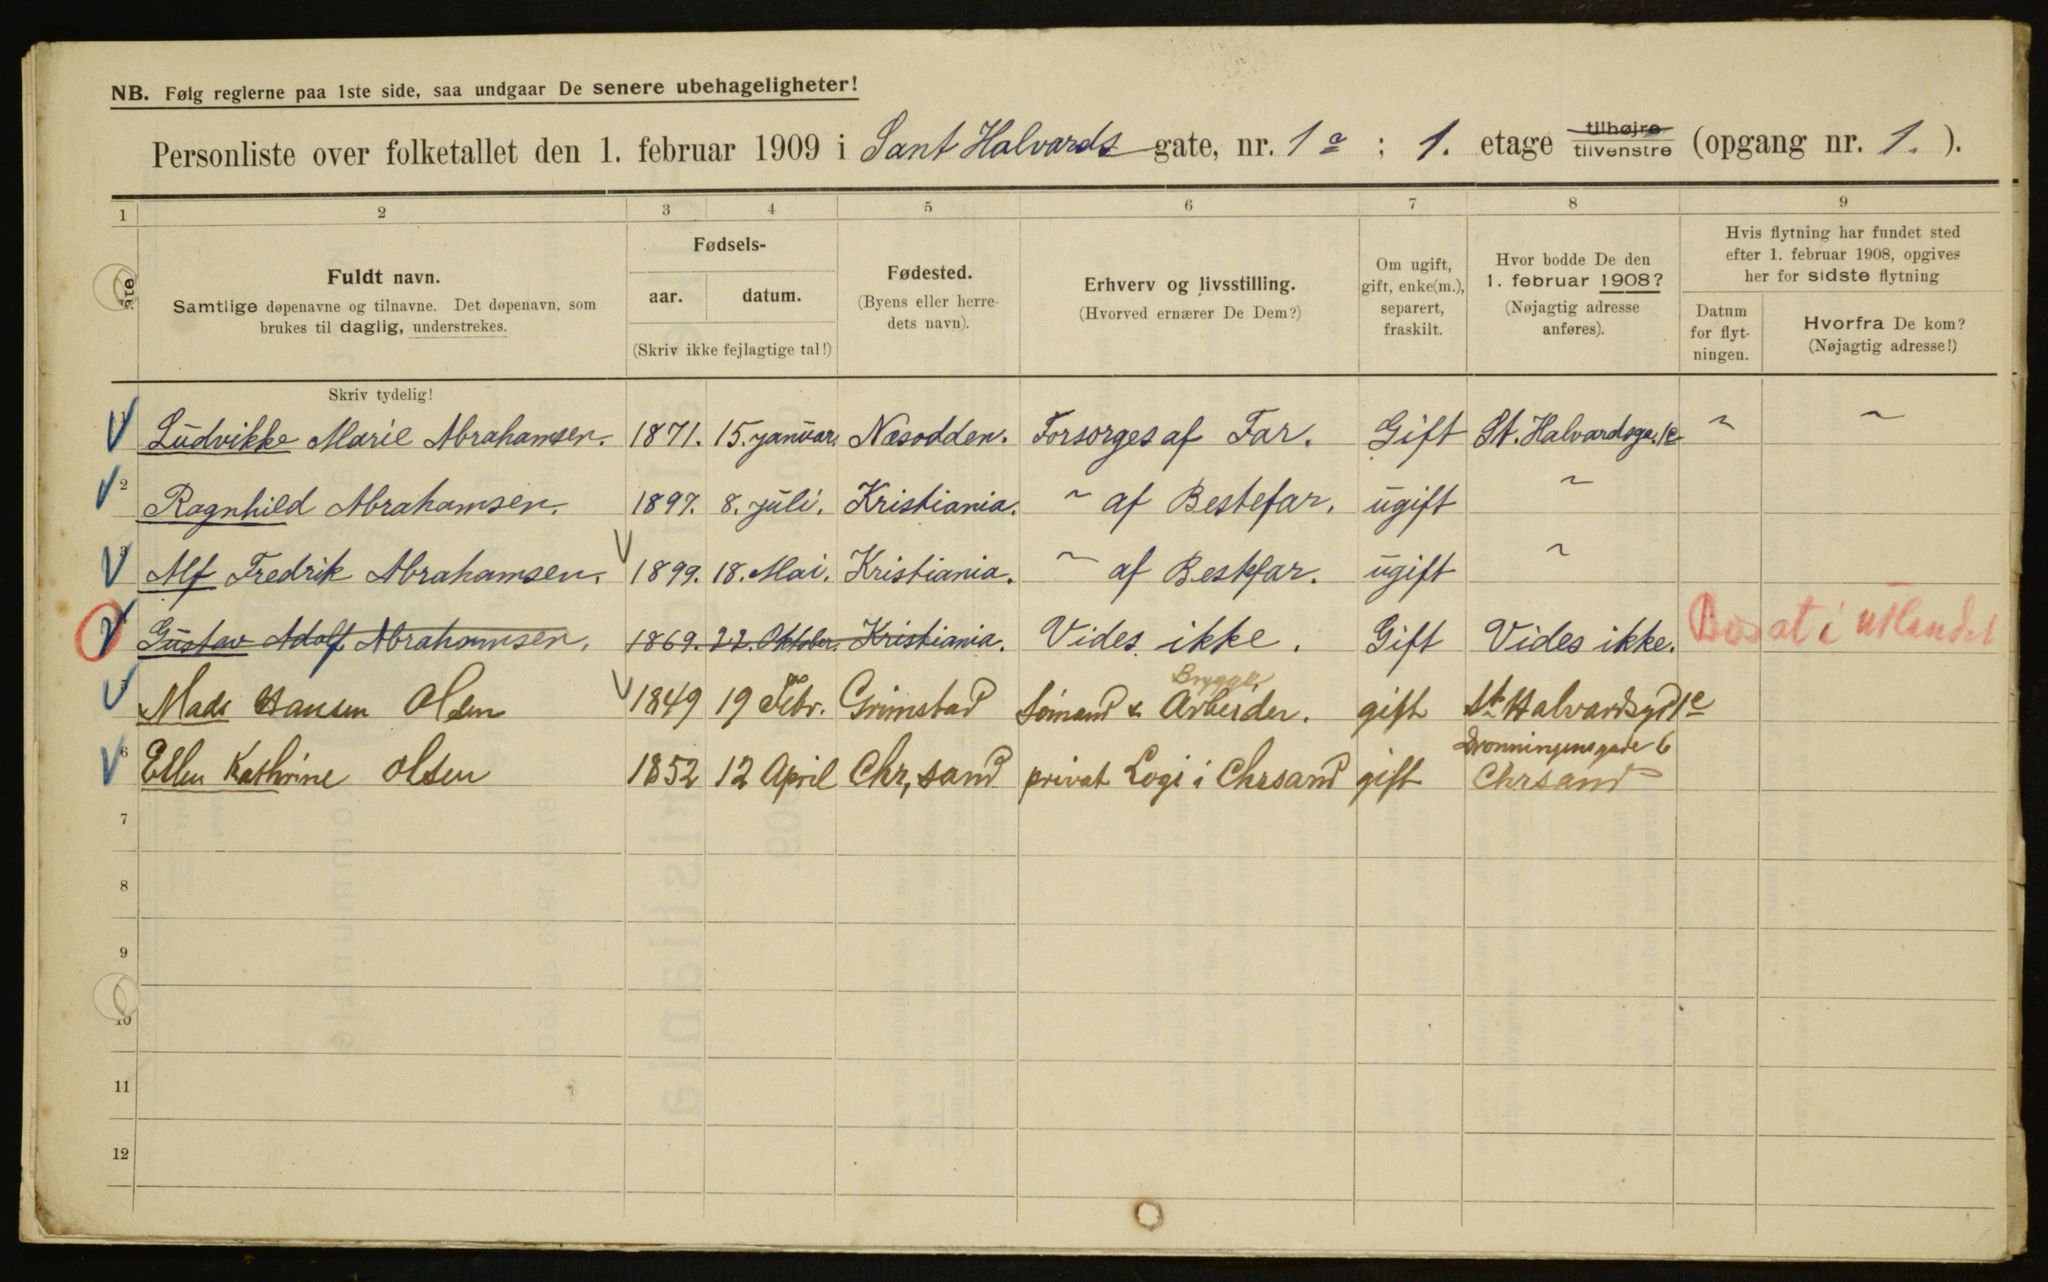 NB. Følg reglerne paa 1ste side, saa undgaar De senere ubehageligheter!
Personliste over folketallet den 1. februar 1909 i Sant Halvards gate, nr. 1e; 1. etage tilhøjre tilvenstre (opgang nr. 1.).
1 2 3 4 5 6 7 8 9
Fuldt navn.
Samtlige døpenavne og tilnavne. Det døpenavn, som
brukes til daglig, understrekes.
Fødsels-
aar. datum.
(Skriv ikke fejlagtige tal!)
Fødested.
(Byens eller herre-
dets navn).
Erhverv og livsstilling.
(Hvorved ernærer De Dem?)
Om ugift,
gift, enke(m.),
separert,
fraskilt.
Hvor bodde De den
1. februar 1908?
(Nøjagtig adresse
anføres).
Hvis flytning har fundet sted
efter 1. februar 1908, opgives
her for sidste flytning
Datum
for flyt-
ningen.
Hvorfra De kom?
(Nøjagtig adresse!)
Skriv tydelig!
Ludvikke Marie Abrahamsen. 1871. 15. januar. Næsodden. Forsorges af Far. Gift St. Halvardsga. 1e ~ ~
2 Ragnhild Abrahamsen. 1897. 8. juli. Kristiania. ~ af Bestefar. ugift ~
3 Alf Fredrik Abrahamsen. 1899. 18. Mai. Kristiania. ~ af Bestefar. ugift ~
Gustav Adolf Abrahamsen. 1869. 22. Oktober. Kristiania. Vides ikke. Gift Vides ikke. Bosat i utlandet
Brygge
5 Mads Hansen Olsen 1849 19 Febr. Grimstad Sømand & Arbeider. gift St Halvardsgd 1e
Dronningensgade 6
6 Ellen Kathrine Olsen 1852 12 April Chr,sand privat Logi i Chrsand gift Chrsand
7
8
9
10
11
12